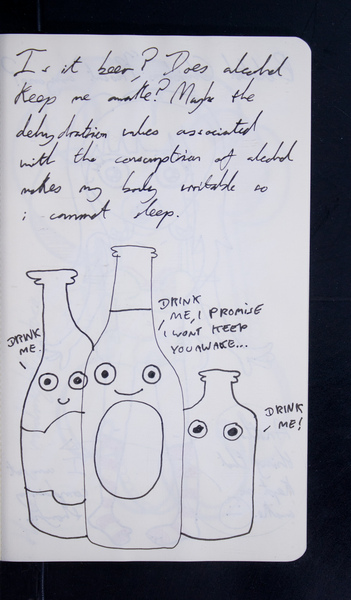 Is it beer? Does alcohol
Keep me awake? Maybe the
dehydration values associated
with the consumption of alcohol
makes my body irritable so
i cannot sleep.
DRINK
ME, I PROMISE
I WONT KEEP
YOU AWAKE...
DRINK
ME
DRINK
ME!